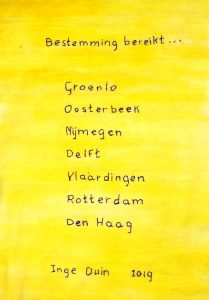 Bestemming bereikt...
Groenlo
Oosterbeek
Nijmegen
Delft
Vlaardingen
Rotterdam
Den Haag
Inge Duin 2019